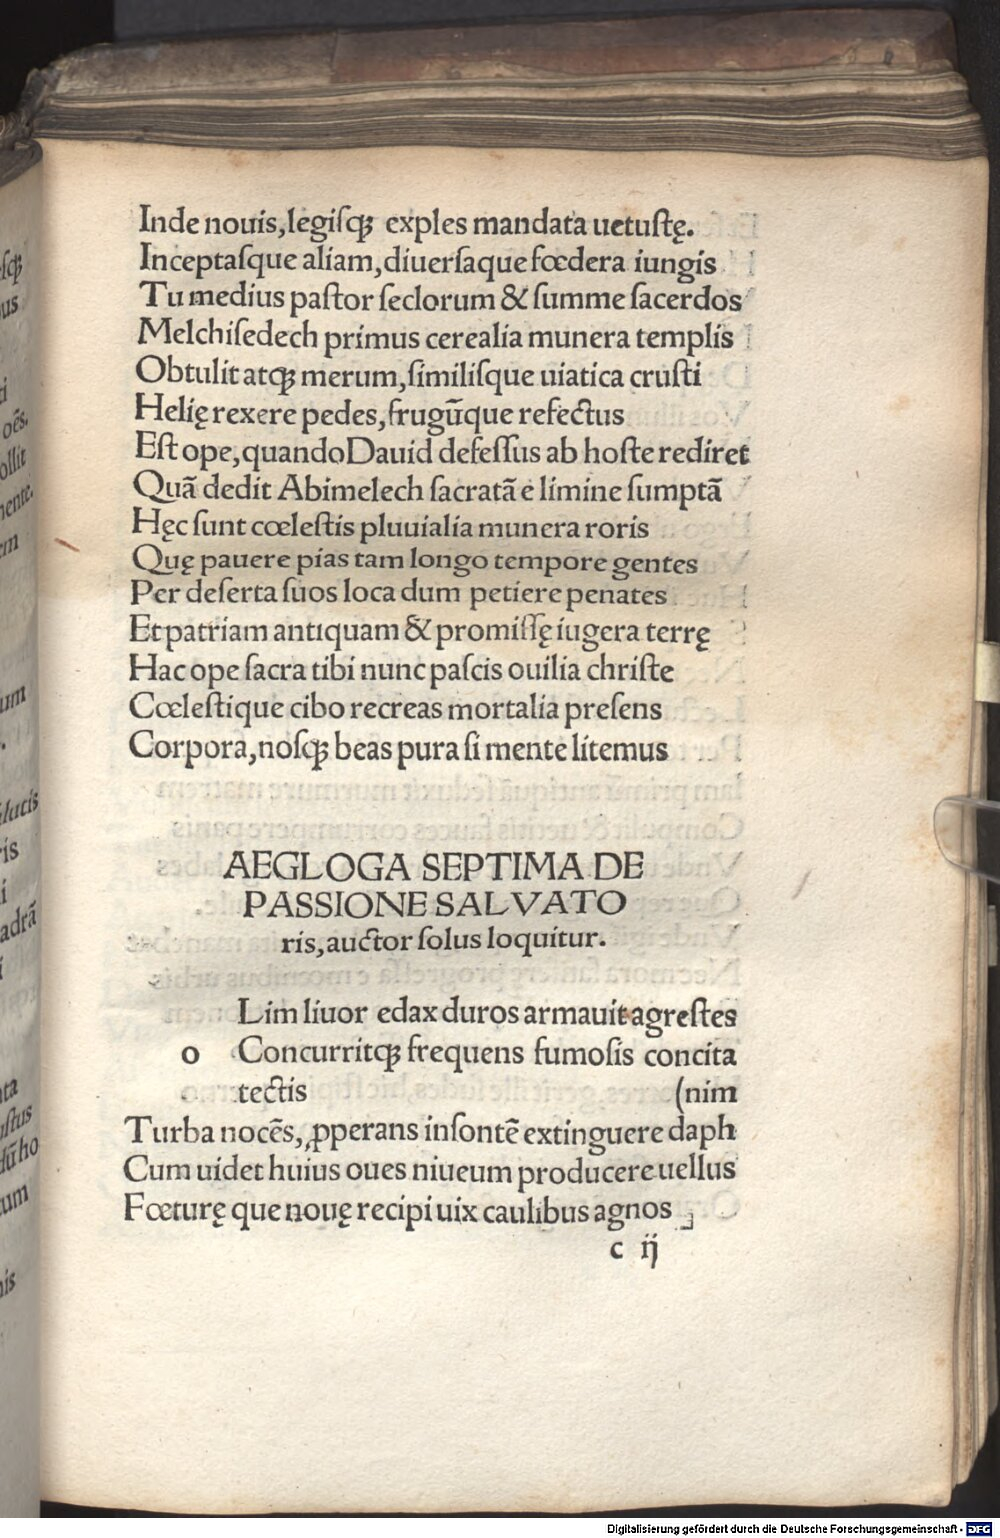 Inde nouis, legiſqꝫ exples mandata uetuſtę.
Inceptaſque aliam, diuerſaque fœdera iungis
Tu medius paſtor ſeclorum & ſumme ſacerdos
Melchiſedech primus cerealia munera templis
Obtulit atqꝫ merum, ſimiliſque uiatica cruſti
Helię rexere pedes, frugūque refectus
Eſt ope, quando Dauid defeſſus ab hoſte rediret
Quā dedit Abimelech ſacratā e limine ſumptā
Hęc ſunt cœleſtis pluuialia munera roris
Quę pauere pias tam longo tempore gentes
Per deſerta ſuos loca dum petiere penates
Et patriam antiquam & promiſſę iugera terrę
Hac ope ſacra tibi nunc paſcis ouilia chriſte
Cœleſtique cibo recreas mortalia preſens
Corpora, noſqꝫ beas pura ſi mente litemus
AEGLOGA SEPTIMA DE
PASSIONE SALVATO
ris, auctor ſolus loquitur.
Lim liuor edax duros armauit agreſtes
o Concurritqꝫ frequens fumoſis concita
tectis (nim
Turba nocēs, ꝓperans inſontē extinguere daph
Cum uidet huius oues niueum producere uellus
Fœturę que nouę recipi uix caulibus agnos
c ij
Digitalisierung gefördert durch die Deutsche Forschungsgemeinschaft - DFG